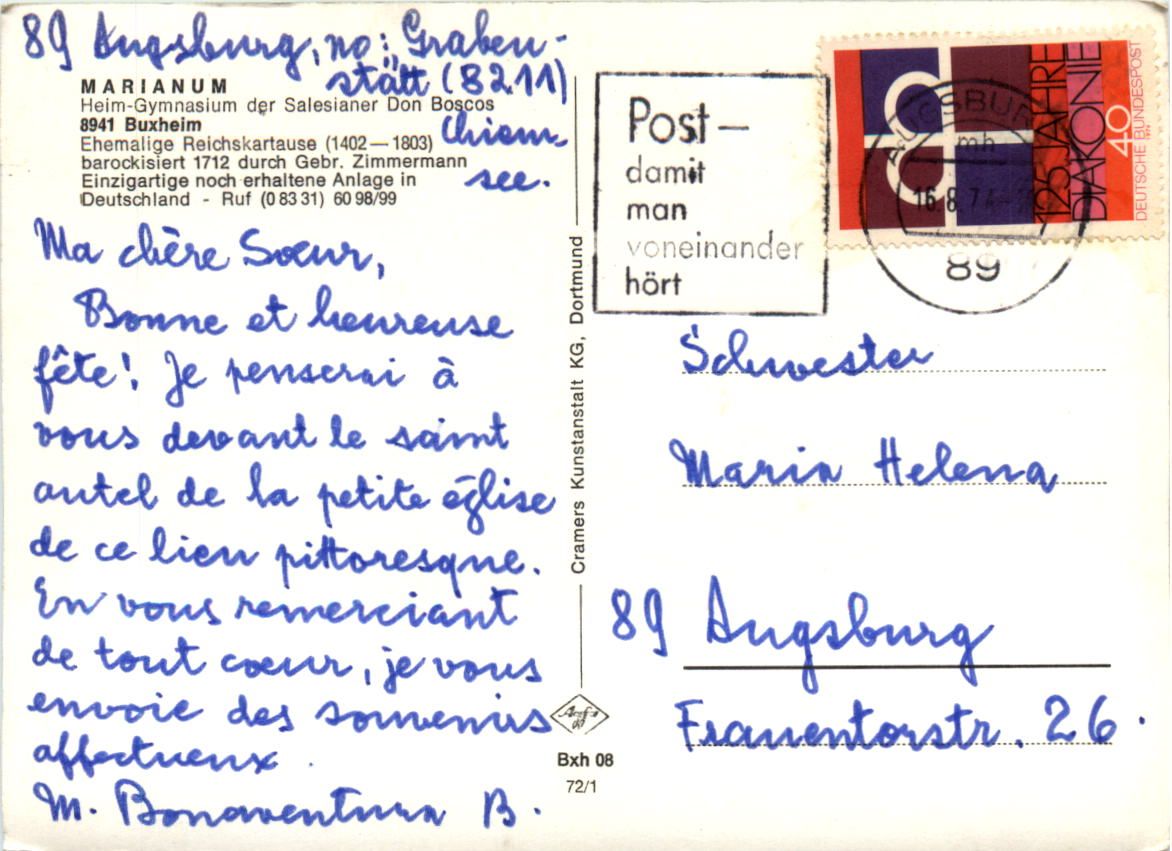 89 Augsburg, no: Graben-
stätt (8211)
Chiem-
see.
MARIANUM
Heim-Gymnasium der Salesianer Don Boscos
8941 Buxheim
Ehemalige Reichskartause (1402 — 1803)
barockisiert 1712 durch Gebr. Zimmermann
Einzigartige noch erhaltene Anlage in
Deutschland - Ruf (0 83 31) 60 98/99
Ma chère Sœur,
Bonne et heureuse
fête! Je penserai à
vous devant le saint
autel de la petite église
de ce lieu pittoresque.
En vous remerciant
de tout cœur, je vous
envoie des souvenirs
affectueux.
M. Bonaventura B.
Cramers Kunstanstalt KG, Dortmund
Bxh 08
72/1
Post —
damit
man
voneinander
hört
125 JAHRE
DIAKONIE
40
DEUTSCHE BUNDESPOST
AUGSBURG
mh
16.8.74
89
Schwester
Maria Helena
89 Augsburg
Frauentorstr. 26.